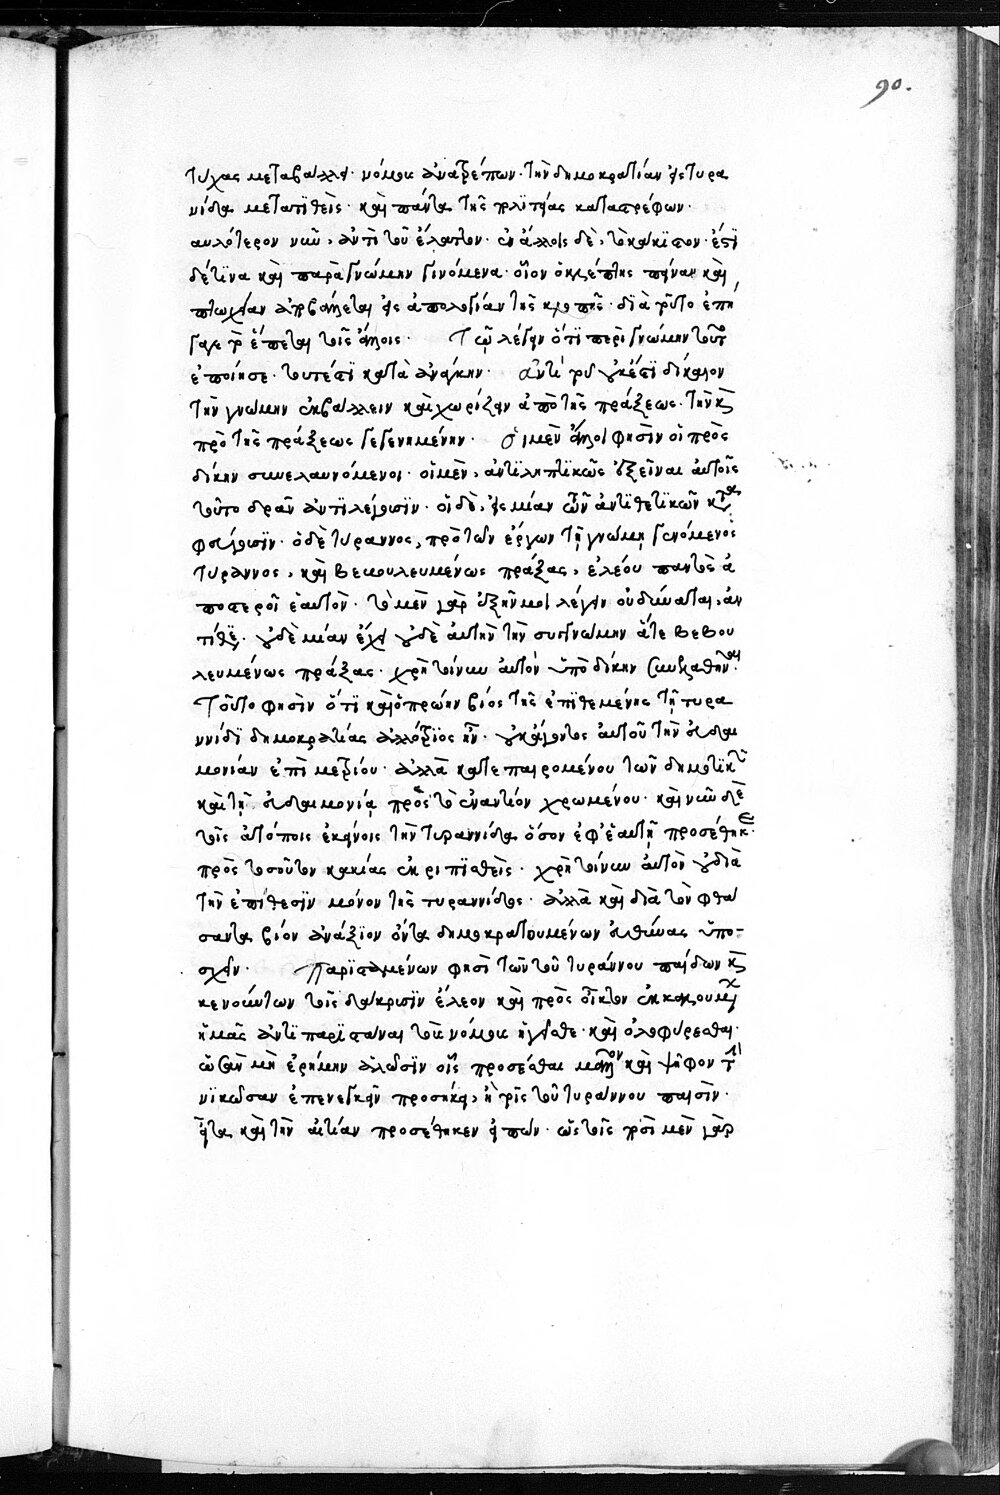 90.
τύχας μεταβάλλει· νόμους ἀνατρέπων· τὴν δημοκρατίαν εἰς τυρα
νίδα μετατιθεὶς· καὶ πάντα τῆς πολιτείας καταστρέφων·
αυλότερον νῦν, ἀντὶ τοῦ ἔλαττον· ἐν ἄλλοις δὲ, τὸ κάκιστον· ἔστι
δέ τινα καὶ παρὰ γνώμην γινόμενα· οἷον ὁ κλέπτης πεῖναν καὶ
πτωχείαν προβάλλεται εἰς ἀπολογίαν τῆς κλοπῆς· διὰ τοῦτο ἐπή
γαγε ἕπεται τοῖς ἄλλοις· Τῷ λέγειν ὅτι περὶ γνώμην τοῦτ
ἐποίησε· τουτέστι κατὰ ἀνάγκην· ἀντὶ τοῦ οὐκ ἔστι δίκαιον
τὴν γνώμην ἐκβάλλειν καὶ χωρίζειν ἀπὸ τῆς πράξεως· τὴν καὶ
πρὸ τῆς πράξεως γεγενημένην· Οἱ μὲν ἄλλοι φησὶν οἱ πρὸς
δίκην συνελαυνόμενοι· οἱ μὲν, ἀντιληπτικῶς ἐξεῖναι αὐτοῖς
τοῦτο δρᾶν ἀντιλέγουσιν· οἱ δὲ, εἰς μίαν τῶν ἀντιθετικῶν
φεύγουσιν· ὁ δὲ τύραννος, πρὸ τῶν ἔργων τῇ γνώμῃ γενόμενος
τύραννος, καὶ βεβουλευμένως πράξας, ἐλέου παντὸς ἀ
ποστεροῖ ἑαυτὸν· τὸ μὲν γὰρ ἐξῆν μοι λέγειν οὐ δύναται, ἀν
τίθε· οὐδὲ μίαν ἔχει οὐδὲ αὐτὴν τὴν συγγνώμην ἅτε βεβου
λευμένως πράξας· χρὴ τοίνυν αὐτὸν ὑπὸ δίκην
Τοῦτο φησὶν ὅτι καὶ ὁ πρώην βίος τῆς ἐπιθεμένης τῇ τυρα
ννίδι δημοκρατίας ἀλλότριος ἦν· οὐκ ἄγοντος αὐτοῦ τὴν εὐδαι
μονίαν ἐπὶ μετρίου· ἀλλὰ κατεπαιρομένου τῶν δημοτικῶν
καὶ τῇ εὐδαιμονίᾳ πρὸς τὸ ἐναντίον χρωμένου· καὶ νῦν δὲ
τοῖς ἀτόποις ἐκείνοις τὴν τυραννίδα ὅσον ἐφ' ἑαυτῇ προσέθηκε·
πρὸς τοσοῦτον κακίας ἐκριπισθεὶς· χρὴ τοίνυν αὐτὸν οὐ διὰ
τὴν ἐπίθεσιν μόνον τῆς τυραννίδος· ἀλλὰ καὶ διὰ τὸν φθά
σαντα βίον ἀνάξιον ὄντα δημοκρατουμένων εὐθύνας ὑπο-
σχεῖν· Παρισταμένων φησὶ τῶν τοῦ τυράννου παίδων καὶ
κενούντων τοῖς δάκρυσιν ἔλεον καὶ πρὸς οἶκτον ἐκκαλουμένων
ἡμᾶς ἀντιπαρίσταναι τοὺς νόμους ἡγεῖσθε· καὶ ὀλοφύρεσθαι·
ὥσπερ μὴ ἐρήμην ἁλῶσιν οἷς προσέσθαι μᾶλλον καὶ ψῆφον τὴν
νικῶσαν ἐπενεγκεῖν προσήκει, ἢ τοῖς τοῦ τυράννου παισὶν·
εἶτα καὶ τὴν αἰτίαν προσέθηκεν εἰπών· ὡς τοῖς παισὶ μὲν γὰρ